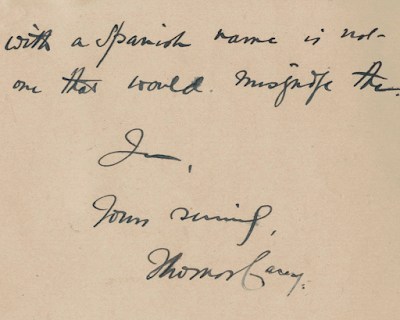 with a Spanish name is not
one that would misjudge the
I am,
Yours sincerely,
Thomas Carey.